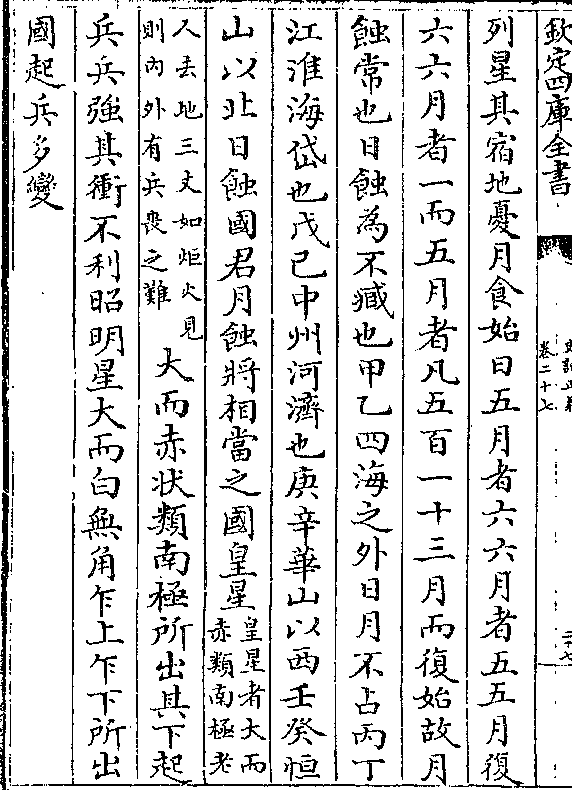 欽定四庫全書
史記正義
卷二十七
列星其宿地憂月食始日五月者六六月者五五月復
六六月者一而五月者凡五百一十三月而復始故月
蝕常也日蝕為不臧也甲乙四海之外日月不占丙丁
江淮海岱也戊己中州河濟也庚辛華山以西壬癸恒
山以北日蝕國君月蝕將相當之國皇星皇星者大而
赤類南極老
人去地三丈如炬火見
則內外有兵喪之難大而赤狀類南極所出其下起
兵兵強其衝不利昭明星大而白無角乍上乍下所出
國起兵多變